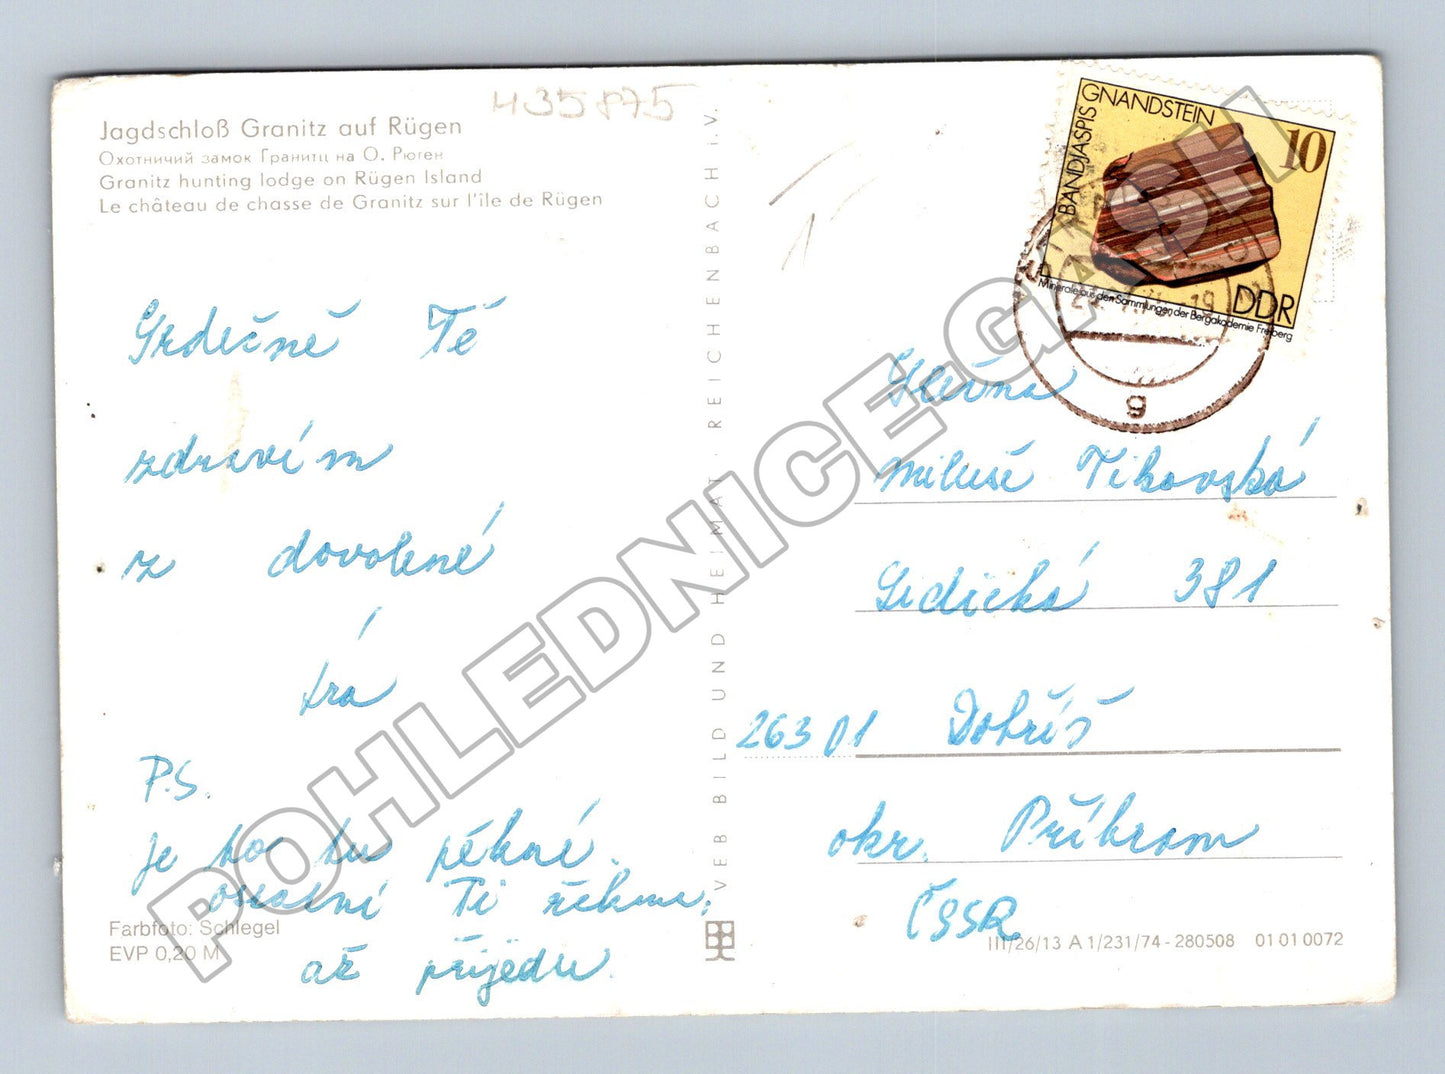 435875
Jagdschloß Granitz auf Rügen
Охотничий замок Гранитц на О. Рюген
Granitz hunting lodge on Rügen Island
Le château de chasse de Granitz sur l'île de Rügen
Srdečně Tě
zdravím
z dovolené
Íra
P.S.
je to tu pěkné.
ostatní Ti řeknu,
až přijedu.
Farbfoto: Schlegel
EVP 0,20 M
VEB BILD UND HEIMAT REICHENBACH i.V.
BANDJASPIS
GNANDSTEIN
10
DDR
Minerale aus den Sammlungen der Bergakademie Freiberg
g
Slečna
Miluše Tikovská
Lidická 381
263 01 Dobříš
okr. Příbram
ČSSR
III/26/13 A 1/231/74-280508 01 01 0072
POHLEDNICE-GASH